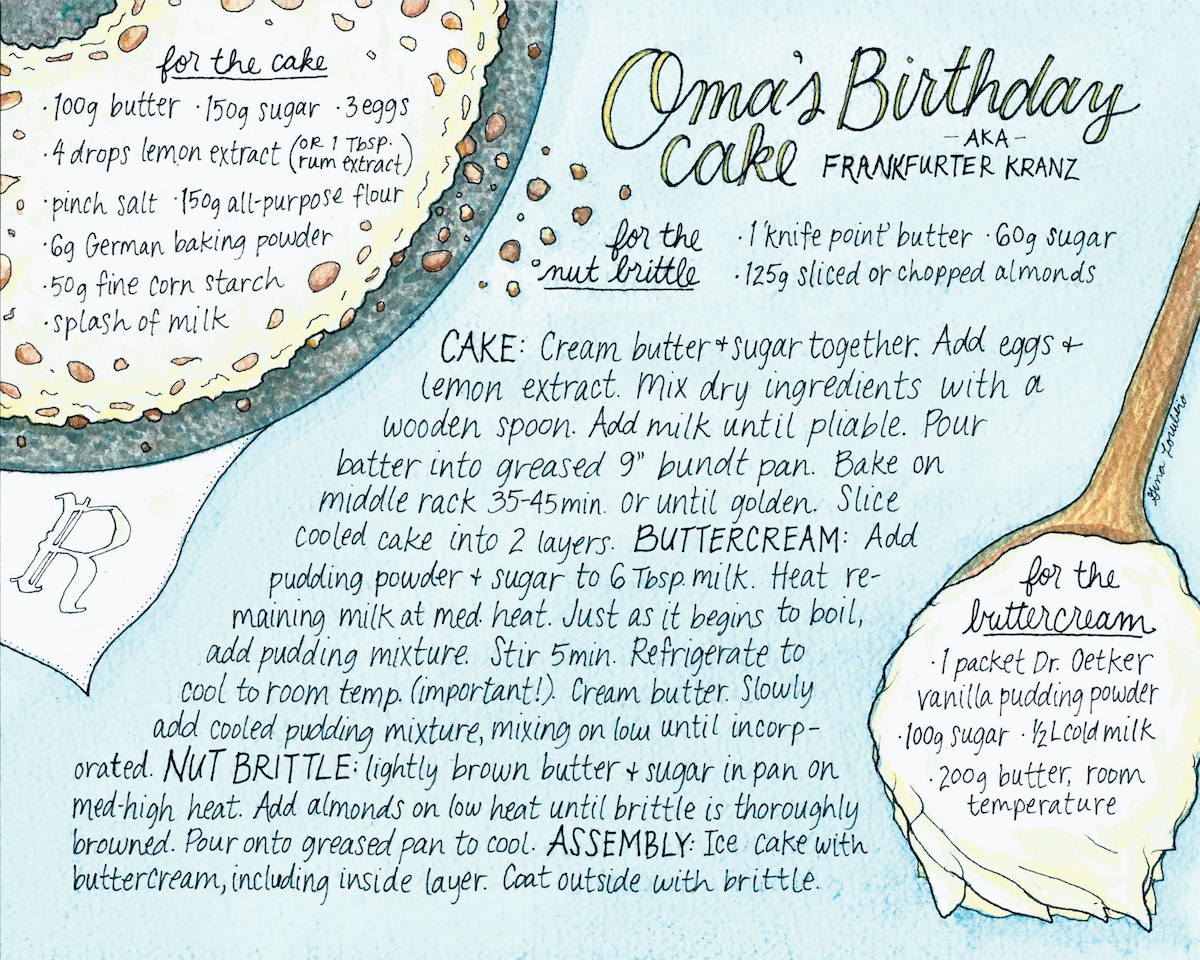 for the cake
·100g butter ·150g sugar ·3 eggs
·4 drops lemon extract (OR 1 Tbsp. rum extract)
·pinch salt ·150g all-purpose flour
·6g German baking powder
·50g fine corn starch
·splash of milk
Oma's Birthday
cake
-AKA-
FRANKFURTER KRANZ
for the
nut brittle
·1 'knife point' butter ·60g sugar
·125g sliced or chopped almonds
CAKE: Cream butter + sugar together. Add eggs +
lemon extract. Mix dry ingredients with a
wooden spoon. Add milk until pliable. Pour
batter into greased 9" bundt pan. Bake on
middle rack 35-45 min. Or until golden. Slice
cooled cake into 2 layers. BUTTERCREAM: Add
pudding powder + sugar to 6 Tbsp. milk. Heat re-
maining milk at med. heat. Just as it begins to boil,
add pudding mixture. Stir 5 min. Refrigerate to
cool to room temp. (important!). Cream butter. Slowly
add cooled pudding mixture, mixing on low until incorp-
orated. NUT BRITTLE: lightly brown butter + sugar in pan on
med-high heat. Add almonds on low heat until brittle is thoroughly
browned. Pour onto greased pan to cool. ASSEMBLY: Ice cake with
buttercream, including inside layer. Coat outside with brittle.
for the
buttercream
·1 packet Dr. Oetker
vanilla pudding powder
·100g sugar ·½L cold milk
·200g butter, room
temperature
R
Gina